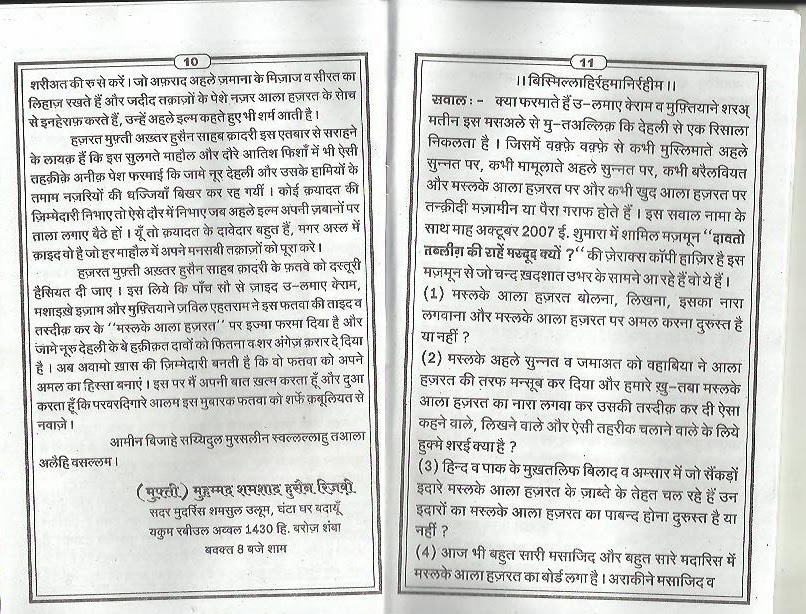 10
शरीअत की रु से करें। जो अफ़राद अहले ज़माना के मिज़ाज व सीरत का
लिहाज़ रखते हैं और जदीद तक़ाज़ों के पेशे नज़र आला हज़रत के सोच
से इनहेराफ़ करते हैं, उन्हें अहले इल्म कहते हुए भी शर्म आती है।
हज़रत मुफ़्ती अख़्तर हुसैन साहब क़ादरी इस एतबार से सराहने
के लायक़ हैं कि इस सुलगते माहौल और दौरे आतिश फिशाँ में भी ऐसी
तहक़ीक़े अनीक़ पेश फरमाई कि जामे नूर देहली और उसके हामियों के
तमाम नज़रियों की धज्जियाँ बिखर कर रह गयीं। कोई क़यादत की
ज़िम्मेदारी निभाए तो ऐसे दौर में निभाए जब अहले इल्म अपनी ज़बानों पर
ताला लगाए बैठे हों। यूँ तो क़यादत के दावेदार बहुत हैं, मगर अस्ल में
क़ाइद वो है जो हर माहौल में अपने मनसबी तक़ाज़ों को पूरा करे।
हज़रत मुफ़्ती अख़्तर हुसैन साहब क़ादरी के फ़तवे को दस्तूरी
हैसियत दी जाए। इस लिये कि पाँच सौ से ज़ाइद उ-लमाए केराम,
मशाइख़े इज़ाम और मुफ़्तियाने ज़विल एहतराम ने इस फतवा की ताइद व
तस्दीक़ कर के "मस्लके आला हज़रत" पर इज्मा फरमा दिया है और
जामे नूरु देहली के बे हक़ीक़त दावों को फितना व शर अंगेज़ क़रार दे दिया
है। अब अवामो ख़ास की ज़िम्मेदारी बनती है कि वो फतवा को अपने
अमल का हिस्सा बनाएं। इस पर मैं अपनी बात ख़त्म करता हूँ और दुआ
करता हूँ कि परवरदिगारे आलम इस मुबारक फतवा को शर्फे क़बूलियत से
नवाज़े।
आमीन बिजाहे सय्यिदुल मुरसलीन स्वल्लल्लाहु तआला
अलैहि वसल्लम।
(मुफ़्ती) मुहम्मद शमशाद हुसैन रिज़वी
सदर मुदर्रिस शमसुल उलूम, घंटा घर बदायूँ
यकुम रबीउल अव्वल 1430 हि. बरोज़ शंबा
बवक्त 8 बजे शाम
11
।।बिस्मिल्लाहिर्रहमानिर्रहीम।।
सवाल:- क्या फरमाते हैं उ-लमाए केराम व मुफ़्तियाने शरअ
मतीन इस मसअले से मु-तअल्लिक़ कि देहली से एक रिसाला
निकलता है। जिसमें वक़्फ़े वक़्फ़े से कभी मुस्लिमाते अहले
सुन्नत पर, कभी मामूलाते अहले सुन्नत पर, कभी बरैलवियत
और मस्लके आला हज़रत पर और कभी खुद आला हज़रत पर
तन्क़ीदी मज़ामीन या पैरा गराफ होते हैं। इस सवाल नामा के
साथ माह अक्टूबर 2007 ई. शुमारा में शामिल मज़मून "दावतो
तब्लीग़ की राहें मस्दूद क्यों?" की ज़ेराक्स कॉपी हाज़िर है इस
मज़मून से जो चन्द ख़दशात उभर के सामने आ रहे हैं वो ये हैं।
(1) मस्लके आला हज़रत बोलना, लिखना, इसका नारा
लगवाना और मस्लके आला हज़रत पर अमल करना दुरुस्त है
या नहीं?
(2) मस्लके अहले सुन्नत व जमाअत को वहाबिया ने आला
हज़रत की तरफ मन्सूब कर दिया और हमारे खु-तबा मस्लके
आला हज़रत का नारा लगवा कर उसकी तस्दीक़ कर दी ऐसा
कहने वाले, लिखने वाले और ऐसी तहरीक चलाने वाले के लिये
हुक्मे शरई क्या है?
(3) हिन्द व पाक के मुख़तलिफ बिलाद व अम्सार में जो सैंकड़ों
इदारे मस्लके आला हज़रत के ज़ाब्ते के तेहत चल रहे हैं उन
इदारों का मस्लके आला हज़रत का पाबन्द होना दुरुस्त है या
नहीं?
(4) आज भी बहुत सारी मसाजिद और बहुत सारे मदारिस में
मस्लके आला हज़रत का बोर्ड लगा है। अराकीने मसाजिद व